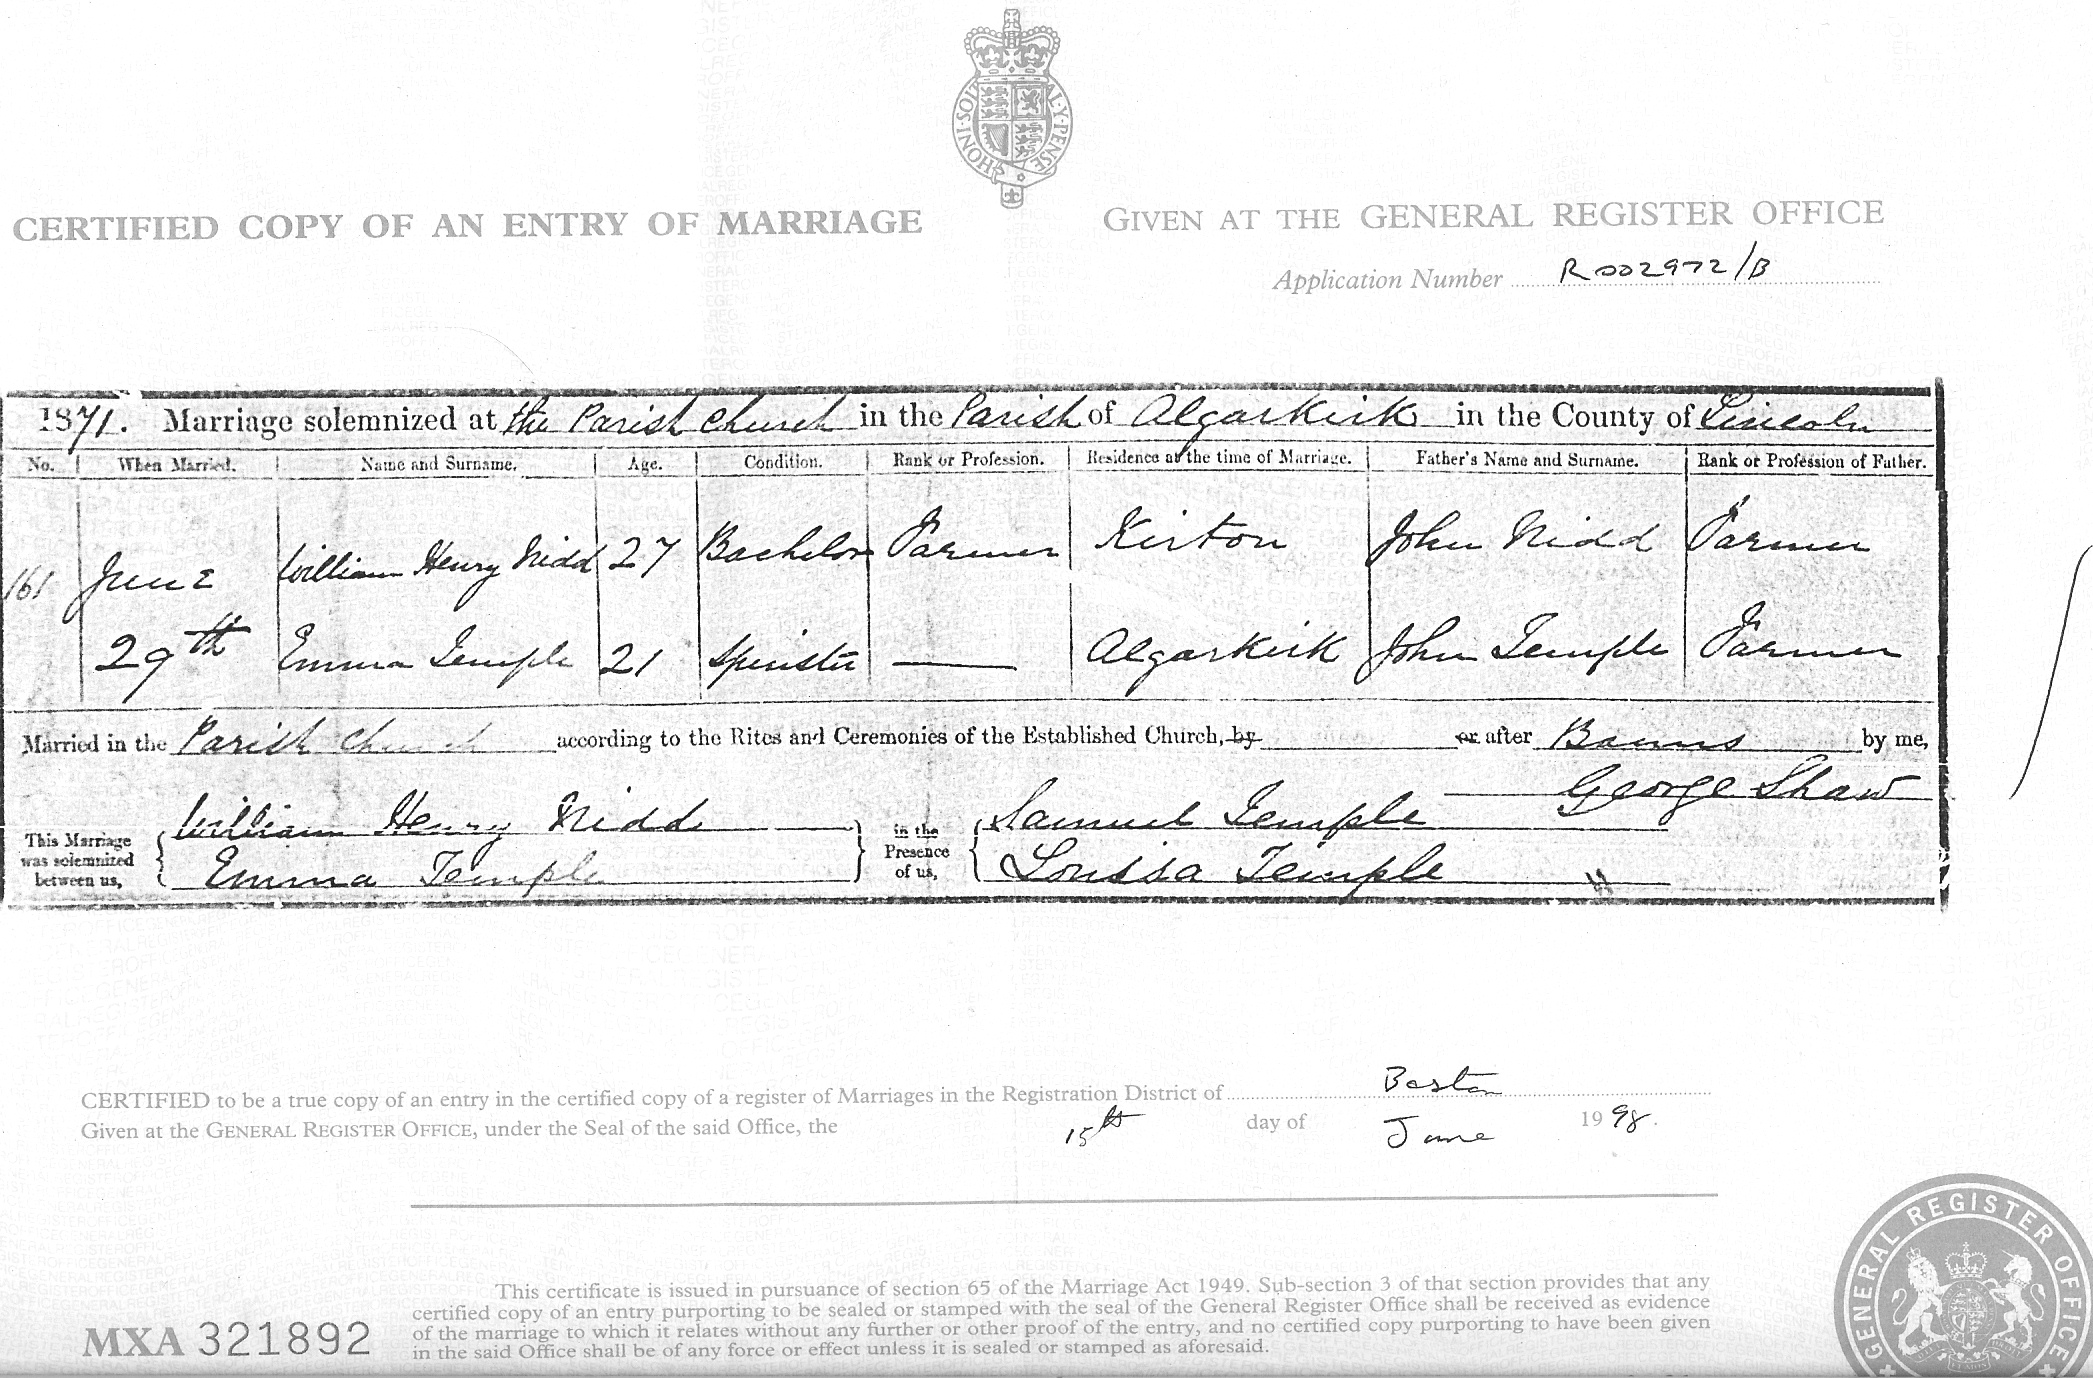 HONI·SOIT AL·Y·PENSE
CERTIFIED COPY OF AN ENTRY OF MARRIAGE
GIVEN AT THE GENERAL REGISTER OFFICE
Application Number R002972/B
1871. Marriage solemnized at the Parish Church in the Parish of Algarkirk in the County of Lincoln
No. When Married. Name and Surname. Age. Condition. Rank or Profession. Residence at the time of Marriage. Father's Name and Surname. Rank or Profession of Father.
161 June William Henry Nidd 27 Bachelor Farmer Kirton John Nidd Farmer
29th Emma Temple 21 Spinster — Algarkirk John Temple Farmer
Married in the Parish Church according to the Rites and Ceremonies of the Established Church, by or after Banns by me,
George Shaw
This Marriage was solemnized between us, William Henry Nidd in the Presence of us, Samuel Temple
Emma Temple Louisa Temple
CERTIFIED to be a true copy of an entry in the certified copy of a register of Marriages in the Registration District of Boston
Given at the GENERAL REGISTER OFFICE, under the Seal of the said Office, the 15th day of June 1998.
This certificate is issued in pursuance of section 65 of the Marriage Act 1949. Sub-section 3 of that section provides that any
certified copy of an entry purporting to be sealed or stamped with the seal of the General Register Office shall be received as evidence
of the marriage to which it relates without any further or other proof of the entry, and no certified copy purporting to have been given
in the said Office shall be of any force or effect unless it is sealed or stamped as aforesaid.
MXA 321892
GENERAL REGISTER OFFICE